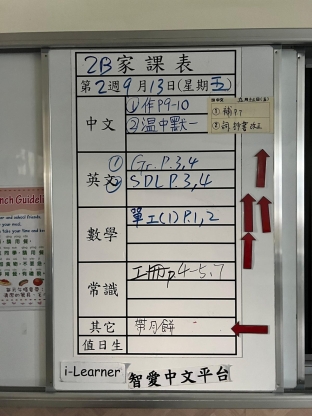 2B家課表
第2週9月13日(星期五)
中文
①作P9-10
②温中默一
①補
②詞
英文
① Gr.P.3,4
② SDL P.3,4
數學
單工(1)P.1,2
常識
工冊p4-5,7
其它
帶月餅
值日生
i-Learner
智愛中文平台
nch Guideli